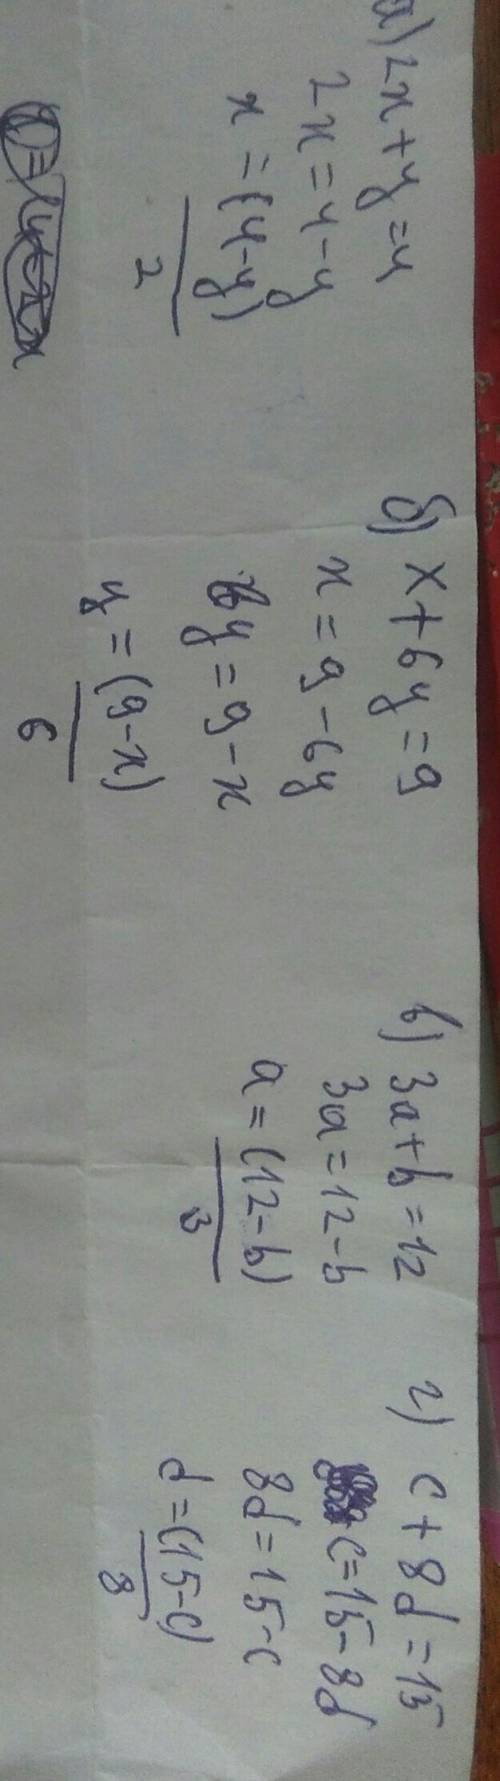 а) 2x+y=4
2x=4-y
x=(4-y)
2
б) x+6y=9
x=9-6y
6y=9-x
y=(9-x)
6
в) 3a+b=12
3a=12-b
a=(12-b)
3
г) c+8d=15
c=15-8d
8d=15-c
d=(15-c)
8